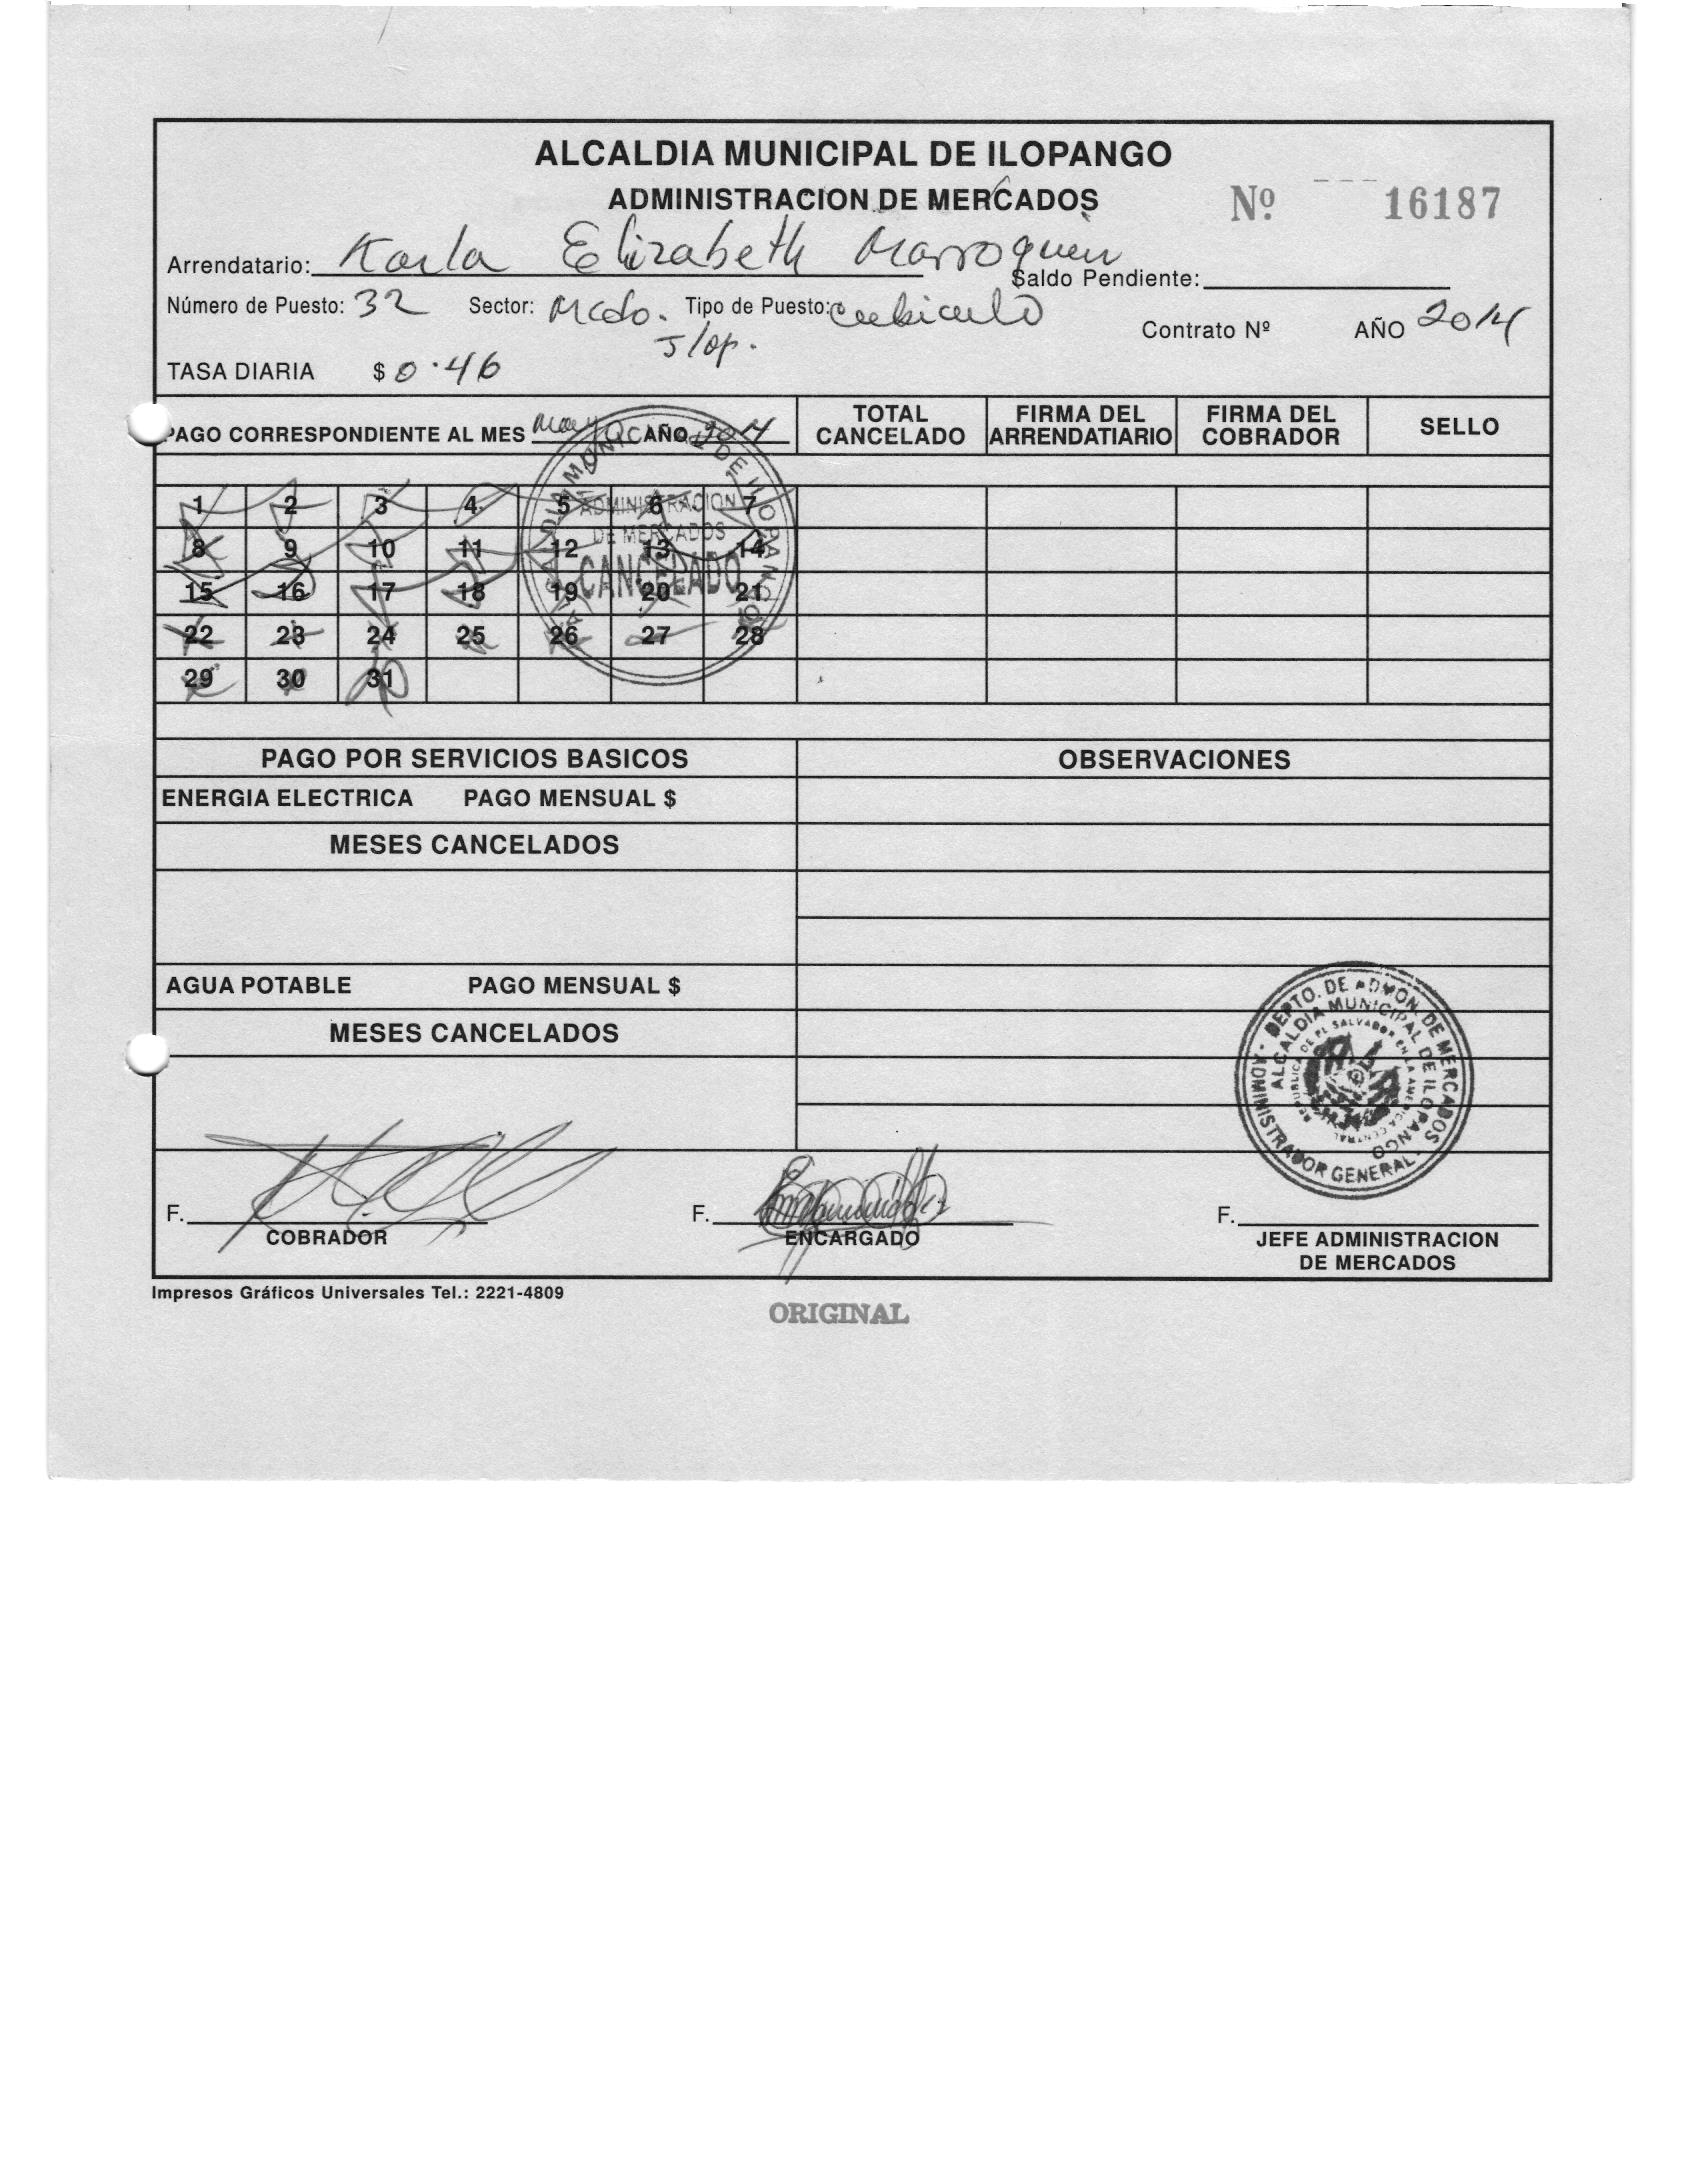 ALCALDIA MUNICIPAL DE ILOPANGO
ADMINISTRACION DE MERCADOS
Nº 16187
Arrendatario: Karla Elizabeth Marroquin
Saldo Pendiente:
Número de Puesto: 32 Sector: Mcdo. Ilop. Tipo de Puesto: cubiculo
Contrato Nº AÑO 2014
TASA DIARIA $ 0.46
PAGO CORRESPONDIENTE AL MES Mayo AÑO 2014
TOTAL CANCELADO
FIRMA DEL ARRENDATIARIO
FIRMA DEL COBRADOR
SELLO
1 2 3 4 5 6 7
8 9 10 11 12 13 14
15 16 17 18 19 20 21
22 23 24 25 26 27 28
29 30 31
ALCALDIA MUNICIPAL DE ILOPANGO
ADMINISTRACION
DE MERCADOS
CANCELADO
PAGO POR SERVICIOS BASICOS
OBSERVACIONES
ENERGIA ELECTRICA PAGO MENSUAL $
MESES CANCELADOS
AGUA POTABLE PAGO MENSUAL $
MESES CANCELADOS
DEPTO. DE ADMON. DE MERCADOS
ALCALDIA MUNICIPAL DE ILOPANGO
REPUBLICA DE EL SALVADOR EN LA AMERICA CENTRAL
ADMINISTRADOR GENERAL
F.
COBRADOR
F.
ENCARGADO
F.
JEFE ADMINISTRACION
DE MERCADOS
Impresos Gráficos Universales Tel.: 2221-4809
ORIGINAL